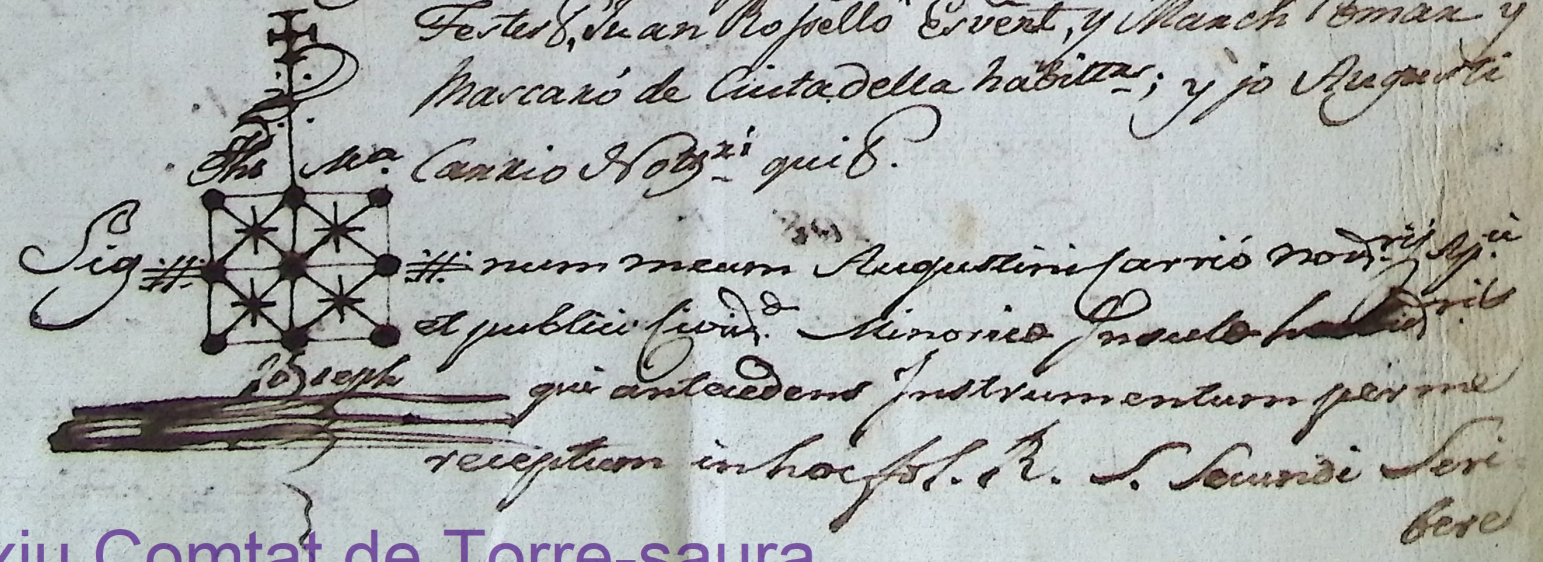 Testes, Juan Rossello Escvent, y March Roman y
Mascaró de Ciutadella habittrs; y jo Augusti
Jhs Ma. Carrio Notri qui &.
Sig num meum Augustini Carrió Notris App.ci
et publici Civitd. Minorice Insule
Joseph qui antecedens Instrumentum per me
receptum in hoc fol. R. S. Secundi Scri
bere
xiu Comtat de Torre-saura